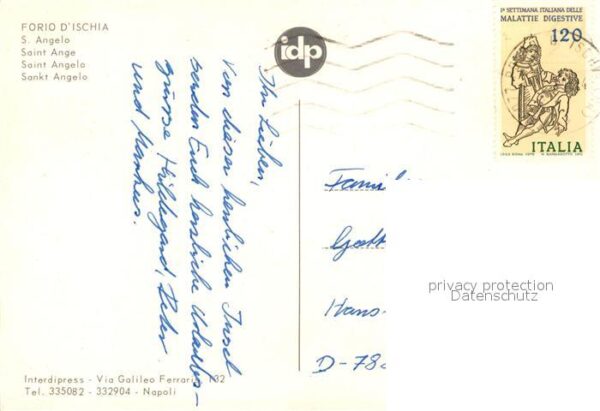 FORIO D'ISCHIA
S. Angelo
Saint Ange
Saint Angelo
Sankt Angelo
idp
1ª SETTIMANA ITALIANA DELLE
MALATTIE DIGESTIVE
120
ITALIA
Ihr Lieben,
Von dieser herrlichen Insel
senden Euch herzliche Urlaubs-
grüsse Hildegard, Peter
und
Famil
Hans-
D-78
privacy protection
Datenschutz
Interdipress - Via Galileo Ferraris 132
Tel. 335082 - 332904 - Napoli